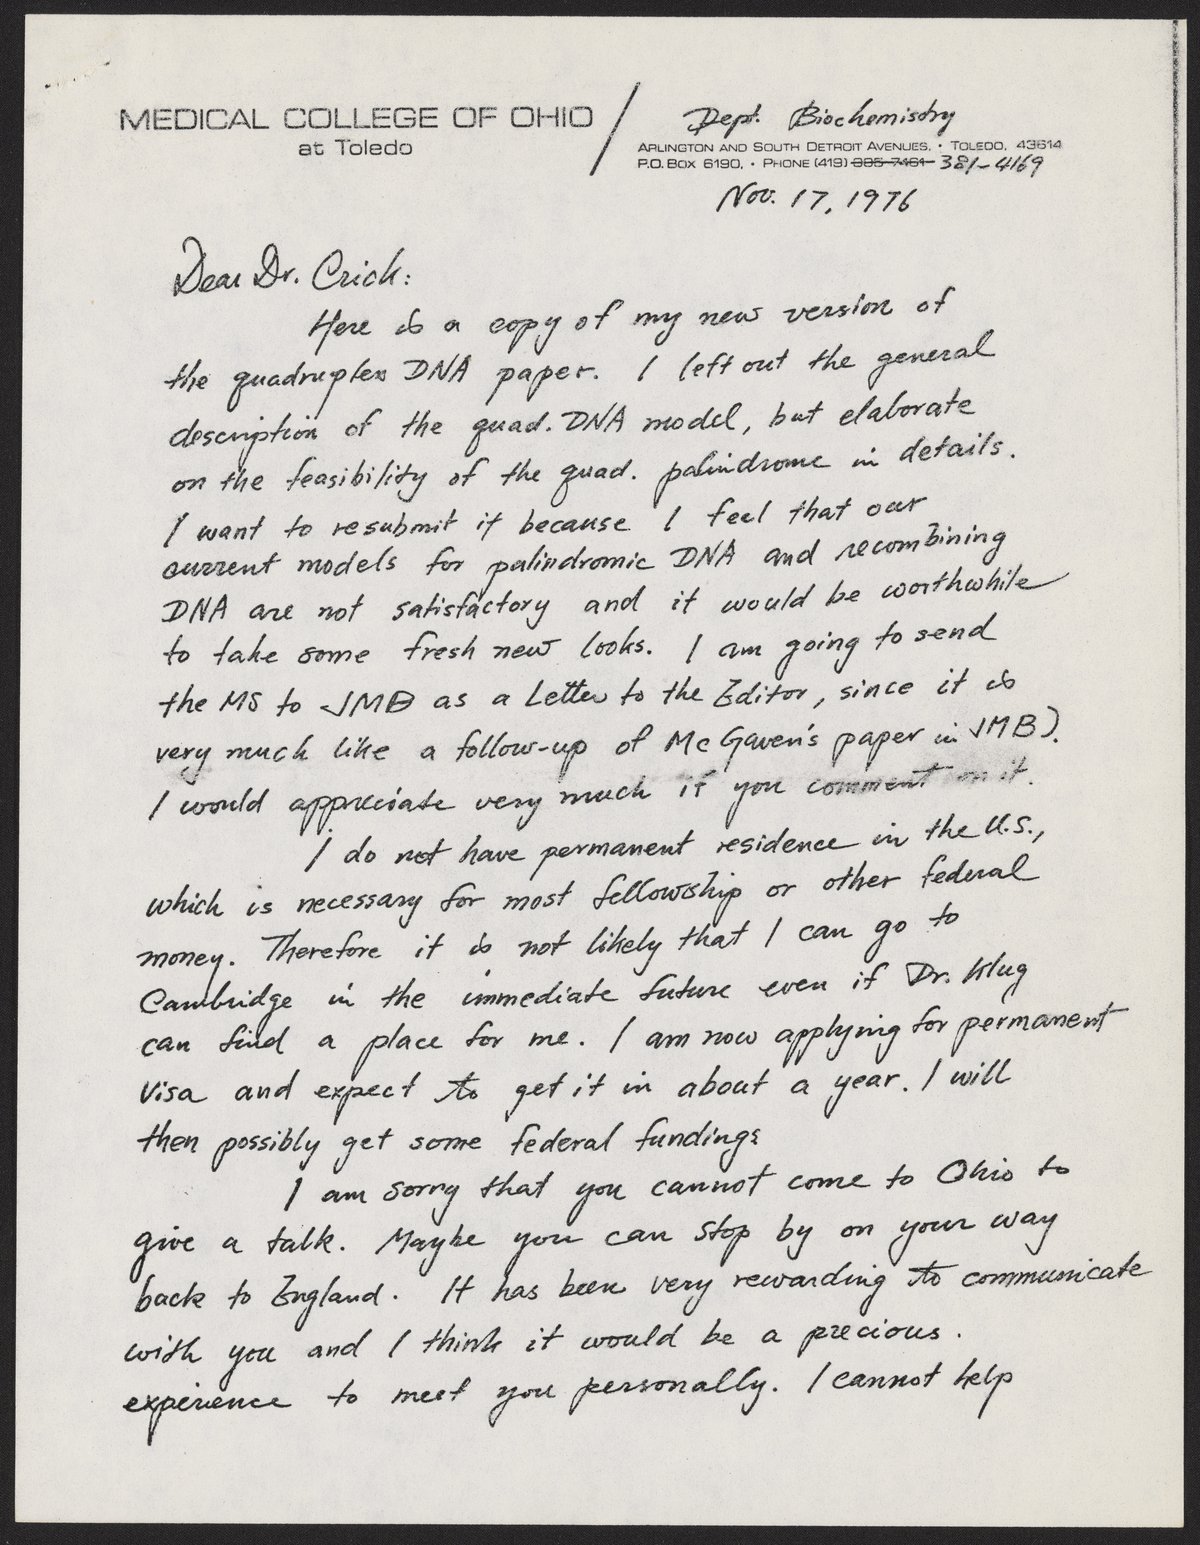 MEDICAL COLLEGE OF OHIO
at Toledo
Dept. Biochemistry
ARLINGTON AND SOUTH DETROIT AVENUES, • TOLEDO, 43614
P.O. BOX 6190, • PHONE (419) 385-7461 381-4169
Nov. 17, 1976
Dear Dr. Crick:
Here is a copy of my new version of
the quadruplex DNA paper. I left out the general
description of the quad. DNA model, but elaborate
on the feasibility of the quad. palindrome in details.
I want to resubmit it because I feel that our
current models for palindromic DNA and recombining
DNA are not satisfactory and it would be worthwhile
to take some fresh new looks. I am going to send
the MS to JMB as a Letter to the Editor, since it is
very much like a follow-up of McGaven's paper in JMB).
I would appreciate very much if you comment on it.
I do not have permanent residence in the U.S.,
which is necessary for most fellowship or other federal
money. Therefore it is not likely that I can go to
Cambridge in the immediate future even if Dr. Klug
can find a place for me. I am now applying for permanent
Visa and expect to get it in about a year. I will
then possibly get some federal fundings
I am sorry that you cannot come to Ohio to
give a talk. Maybe you can stop by on your way
back to England. It has been very rewarding to communicate
with you and I think it would be a precious.
experience to meet you personally. I cannot help